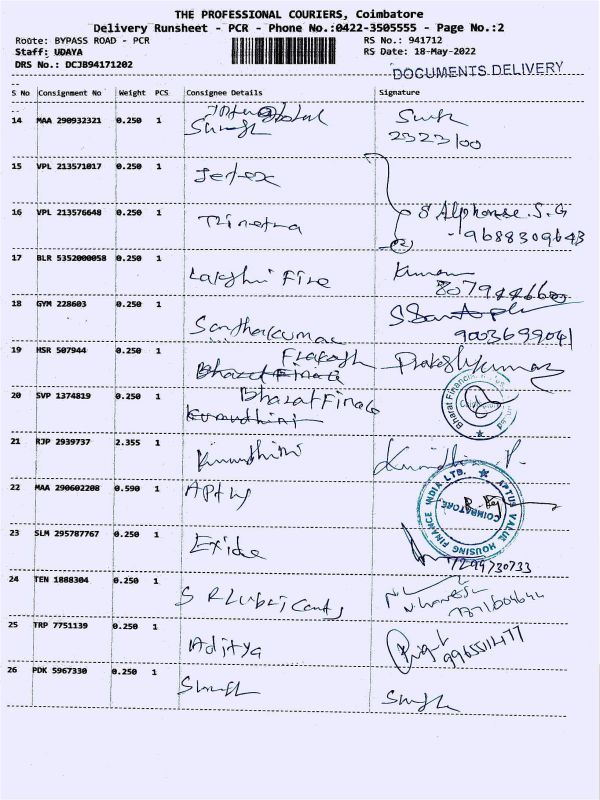 THE PROFESSIONAL COURIERS, Coimbatore
Delivery Runsheet - PCR - Phone No.:0422-3505555 - Page No.:2
Route: BYPASS ROAD - PCR
RS No.: 941712
Staff: UDAYA
RS Date: 18-May-2022
DRS No.: DCJB94171202
DOCUMENTS DELIVERY
S No Consignment No Weight PCS Consignee Details Signature
14 MAA 290932321 0.250 1
2323/00
15 VPL 213571017 0.250 1
16 VPL 213576648 0.250 1 Trinetra S Alphonse. S. G
9688309643
17 BLR 5352000058 0.250 1 Lakshmi Fire Kumar
18 GYM 228603 0.250 1 Santhakumar
9003699041
19 HSR 507944 0.250 1 Prakash Prakashkumar
Bharat Finance
20 SVP 1374819 0.250 1 Bharat Finance
Kumudhini
Bharat Financi
21 RJP 2939737 2.355 1 Kumudhini
22 MAA 290602208 0.590 1 Aptus
APTUS VALUE HOUSING FINANCE INDIA LTD.
COIMBATORE
23 SLM 295787767 0.250 1 Exide 7299730733
24 TEN 1888304 0.250 1 S R Lubricants
25 TRP 7751139 0.250 1 Aditya 9965511477
26 PDK 5967330 0.250 1